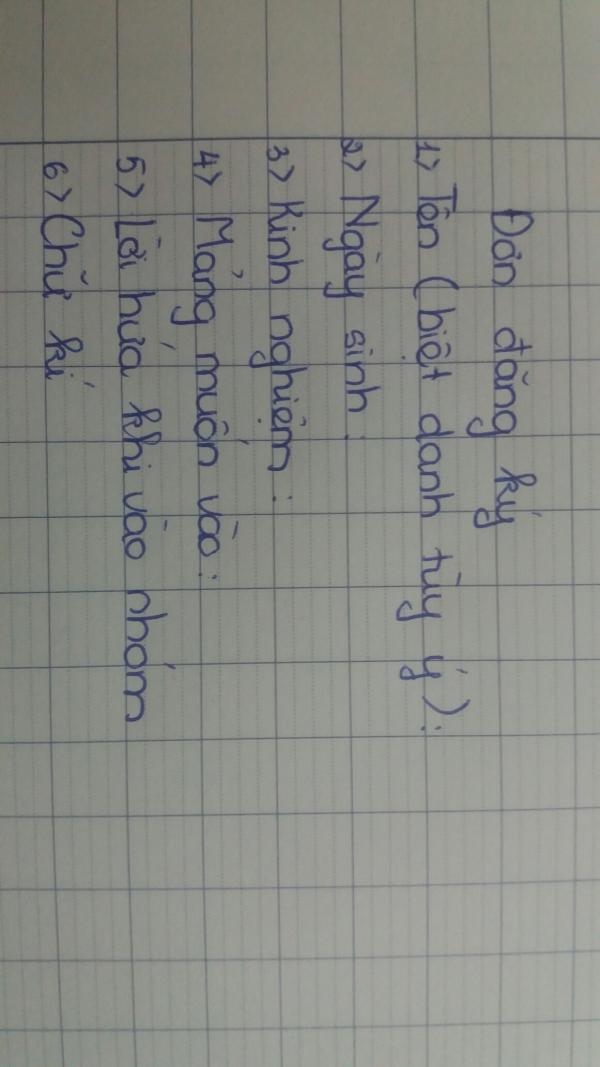 Đơn đăng ký
1> Tên (biệt danh tùy ý):
2> Ngày sinh:
3> Kinh nghiệm:
4> Mảng muốn vào:
5> Lời hứa khi vào nhóm
6> Chữ kí